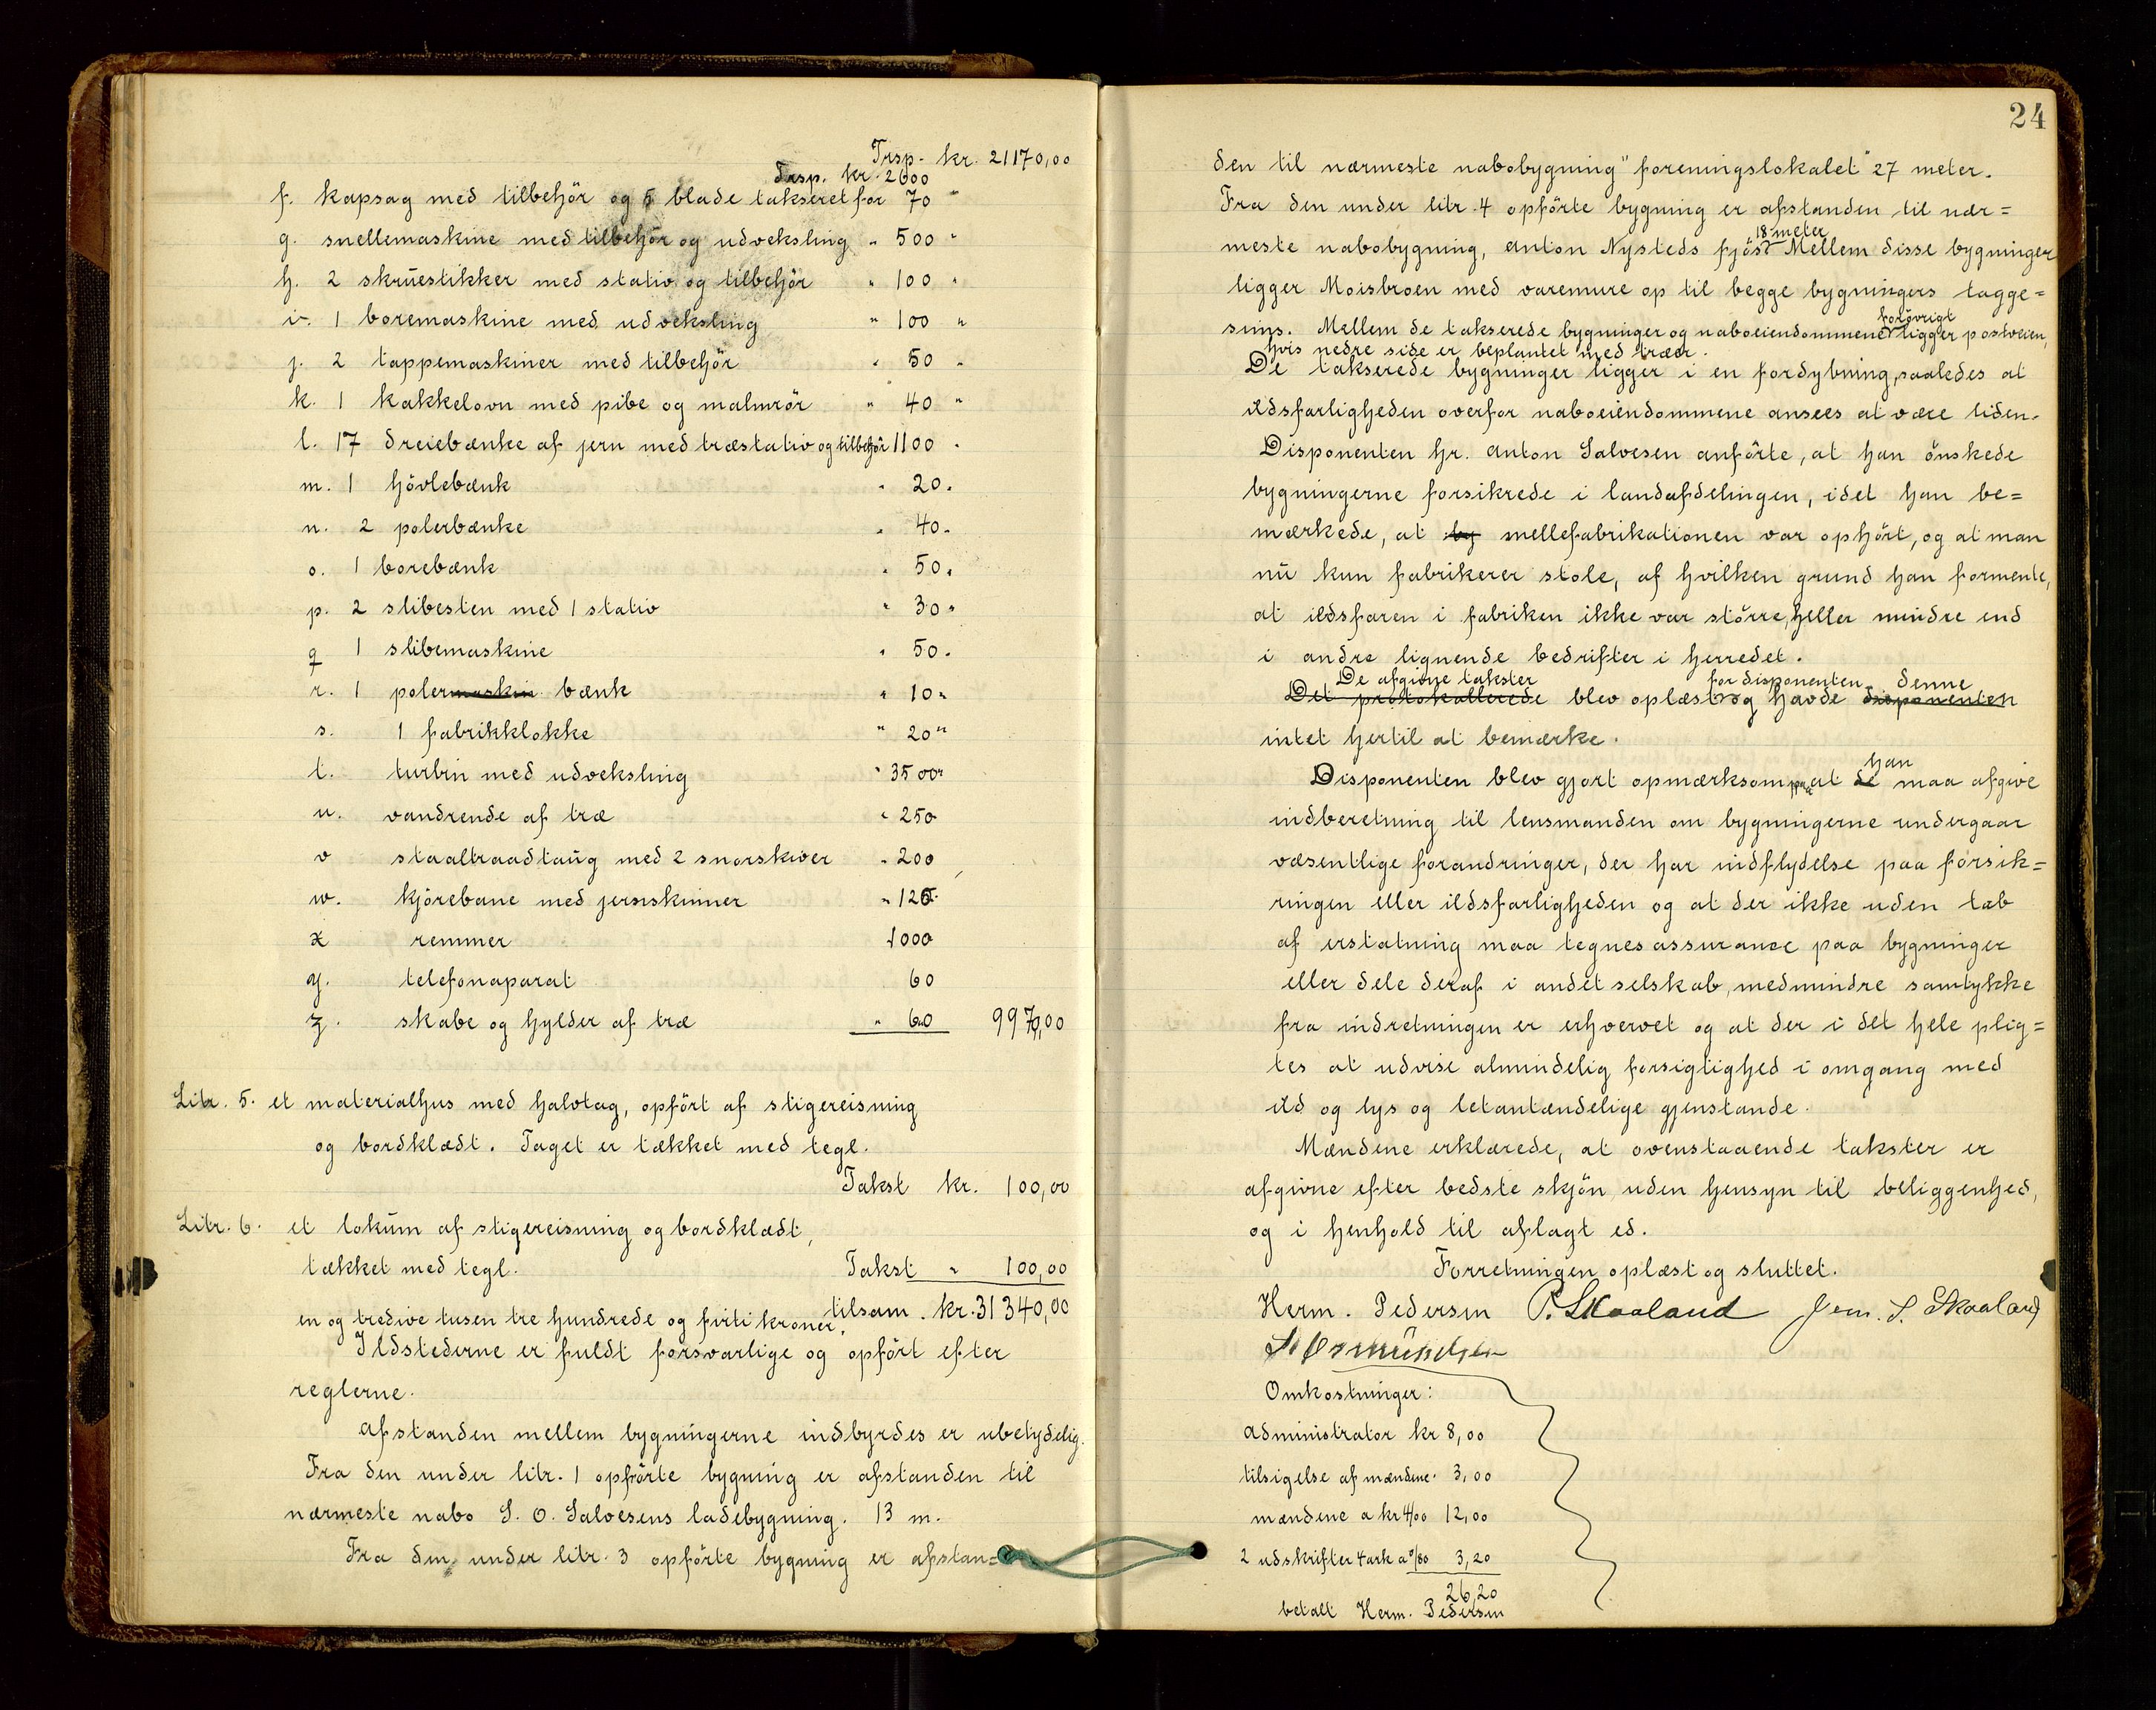 Trsp. kr. 21170,00
Trsp. kr. 2600
f. kapsag med tilbehör og 5 blade takseret for 70 "
g. snellemaskine med tilbehör og udveksling " 500 "
h. 2 skruestikker med stativ og tilbehör " 100 "
i. 1 boremaskine med udveksling " 100 "
j. 2 tappemaskiner med tilbehör " 50 "
k. 1 kakkelovn med pibe og malmrör " 40 "
l. 17 dreiebænke af jern med træstativ og tilbehör 1100 "
m. 1 hövlebænk " 20 "
n. 2 polerbænke " 40 "
o. 1 borebænk " 50 "
p. 2 slibesten med 1 stativ " 30 "
q 1 slibemaskine " 50 "
r. 1 polermaskin bænk " 10 "
s. 1 fabrikklokke " 20 "
t. turbin med udveksling " 3500 "
u. vandrende af træ " 250
v staaltraadtaug med 2 snorskiver " 200
w. kjörebane med jernskinner " 120
x remmer 1000
y. telefonaparat 60
z. skabe og hylder af træ " 60 9970,00
Litr. 5. et materialhus med halvtag, opfört af stigereisning
og bordklædt. Taget er tækket med tegl.
Takst kr. 100,00
Litr. 6. et lokum af stigereisning og bordklædt,
tækket med tegl. Takst " 100,00
en og tredive tusen tre hundrede og firti kroner. tilsam. kr. 31340,00
Ildstederne er fuldt forsvarlige og opfört efter
reglerne.
Afstanden mellem bygningerne indbyrdes er ubetydelig.
Fra den under litr. 1 opförte bygning er afstanden til
nærmeste nabo S. O. Salvesens ladebygning. 13 m.
Fra den under litr. 3 opförte bygning er afstan=
24
den til nærmeste nabobygning "foreningslokalet" 27 meter.
Fra den under litr. 4 opförte bygning er afstanden til nær=
18 meter
meste nabobygning, Anton Nysteds fjös. Mellem disse bygninger
ligger Moisbroen med varemure op til begge bygningers tagge=
forövrigt
sims. Mellem de takserede bygninger og naboeiendommene ligger postveien,
hvis nedre side er beplantet med træer.
De takserede bygninger ligger i en fordybning, saaledes at
ildsfarligheden overfor naboeiendommene ansees at være liden.
Disponenten hr. Anton Salvesen anförte, at han önskede
bygningerne forsikrede i landafdelingen, idet han be=
mærkede, at by snellefabrikationen var ophört, og at man
nu kun fabrikerer stole, af hvilken grund han formente,
at ildsfaren i fabriken ikke var större, heller mindre end
i andre lignende bedrifter i herredet.
De afgivne takster for disponenten denne
Det protokollerede blev oplæst og havde disponenten
intet hertil at bemærke.
han
Disponenten blev gjort opmærksom paa at de maa afgive
indberetning til lensmanden om bygningerne undergaar
væsentlige forandringer, der har indflydelse paa forsik=
ringen eller ildsfarligheden og at der ikke uden tab
af erstatning maa tegnes assurance paa bygninger
eller dele deraf i andet selskab, medmindre samtykke
fra indretningen er erhvervet og at der i det hele plig=
tes at udvise almindelig forsigtighed i omgang med
ild og lys og letantændelige gjenstande.
Mændene erklærede, at ovenstaaende takster er
afgivne efter bedste skjön uden hensyn til beliggenhed,
og i henhold til aflagt ed.
Forretningen oplæst og sluttet.
Herm. Pedersen P. Skaaland Jem. S. Skaaland
Omkostninger:
administrator kr 8,00
tilsigelse af mændene. 3,00
mændene a kr 4/00 12,00
2 udskrifter 4 ark a 0/80 3,20
26,20
betalt Herm. Pedersen